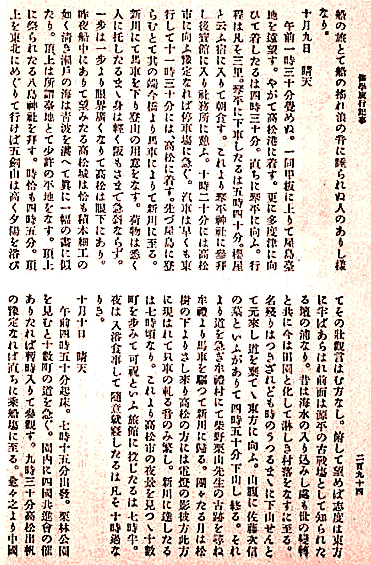 修學旅行記事
二百九十四
船の旅とて船の揺れ浪の音に睡られぬ人のありし様
なり。
十月九日　晴天
午前一時三十分覺めぬ。一同甲板に上りて屋島臺
地を遠望す。やがて高松港に着す。更に多度津に向
ひて着したるは四時三十分。直ちに琴平に向ふ。行
程は凡そ三里。琴平に下車したるは五時四十分。櫻屋
と云ふ宿に入りて朝食す。これより琴平神社に參拜
し後賓館に入り社務所に憩ふ。十時二十分には高松
市に向ふ豫定なれば停車場に急ぐ。汽車は早くも東
行して十一時三十分には、高松に着す。先づ屋島に登
らむとて其の歸今橋より馬車によりて新川に至る。
新川にて馬車を下り登山の用意をなす。荷物は悉く
人に托したるまゝ身は輕く阪もさまで急斜ならず。
一歩は一歩より眼界廣くなりて高松は眼下にあり。
昨夜船中にありて望みたる高松城は恰も積木細工の
如く清き瀬戸の海は青波を湛へて眞に一幅の畫に似
たり。頂上は所謂臺地とて少許の平地をなす。頂上
に祭られたる八島神社を拜す。時恰も四時五分。頂
上を東北にめぐりて行けば五劍山は高く夕陽を浴び
てその壯觀言はむ方なし。俯して望めば志度は東方
に半ばあらはれ前面は源平の古戰場として知られた
る壇の浦なり。昔は海水の入り込みし處も世の變轉
と共に今は田園と化して淋しき村落をなすに至る。
名殘りはつきざれども時のうつるまゝに下山せんと
て元來し道を棄てゝ東方に向ふ。山腹に佐藤次信
の墓といふがありて四時五十分下山し終る。それ
より道を急ぎ牟禮村にて柴野栗山先生の古跡を尋ね
牟禮より馬車を驅つて新川に歸る。團々たる月は松
樹の下よりさし來り高松の方には電燈の影彼方此方
に現はれて只車の軋る音のみ繁し。新川に達したる
は七時頃なり。これより高松市の夜景を見つゝ十數
町を歩みて可祝といふ旅館に投じたるは七時半。
夜は入浴食事して隨意就寢したるは凡そ十時過な
りき。
十月十日　晴天
午前四時五十分起床。七時十五分出發。栗林公園
を見むと十數町の道を急ぐ。園内に四國共進會の催
ありたれば暫時入りて參觀す。九時三十分高松出帆
の豫定なれば直ちに乘船場に至る。愈々之より中國